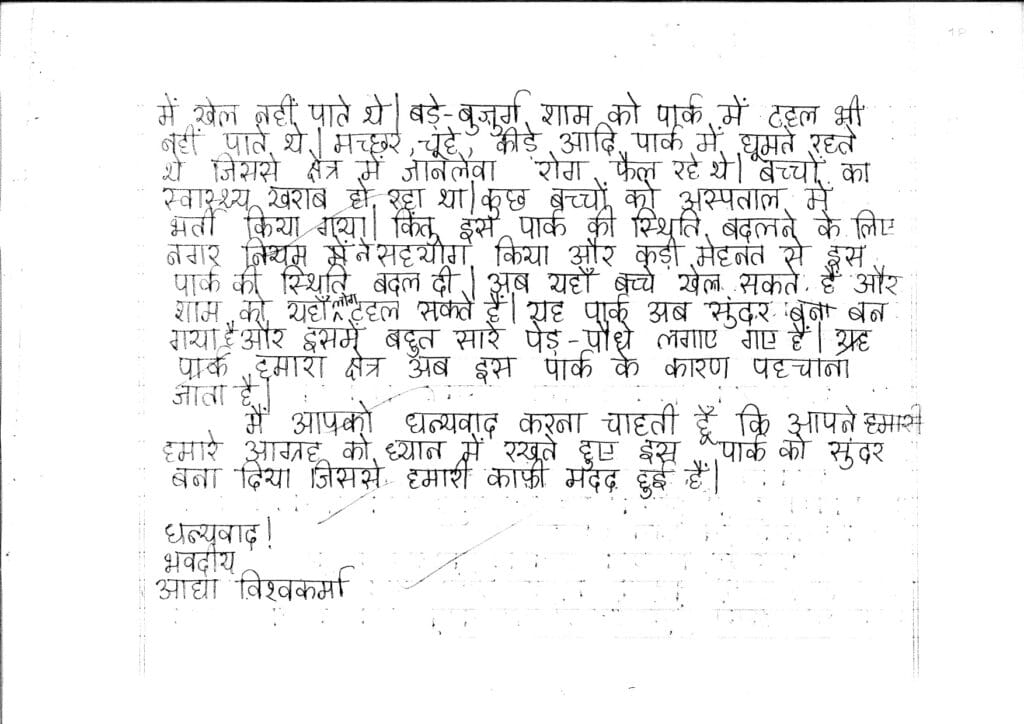 में खेल नहीं पाते थे| बड़े-बुजुर्ग शाम को पार्क में टहल भी
नहीं पाते थे| मच्छर, चूहे, कीड़े आदि पार्क में घूमते रहते
थे जिससे क्षेत्र में जानलेवा रोग फैल रहे थे| बच्चों का
स्वास्थ्य खराब हो रहा था| कुछ बच्चों को अस्पताल में
भर्ती किया गया| किंतु इस पार्क की स्थिति बदलने के लिए
नगर निगम में ने सहयोग किया और कड़ी मेहनत से इस
पार्क की स्थिति बदल दी| अब यहाँ बच्चे खेल सकते हैं और
शाम को यहाँ लोग टहल सकते हैं| यह पार्क अब सुंदर बना बन
गया है और इसमें बहुत सारे पेड़-पौधे लगाए गए हैं| यह
पार्क हमारा क्षेत्र अब इस पार्क के कारण पहचाना
जाता है|
मैं आपको धन्यवाद करना चाहती हूँ कि आपने हमारी
हमारे आग्रह को ध्यान में रखते हुए इस पार्क को सुंदर
बना दिया जिससे हमारी काफ़ी मदद हुई हैं|
धन्यवाद!
भवदीय
आद्या विश्वकर्मा